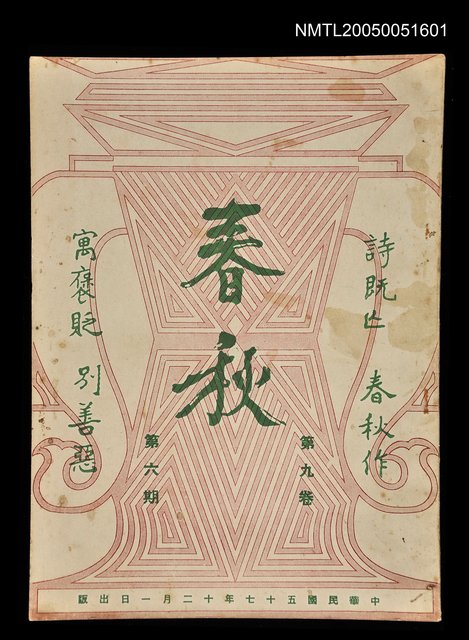 NMTL20050051601
春秋
詩既亡 春秋作
寓褒貶 別善惡
第九卷
第六期
中華民國五十七年十二月一日出版